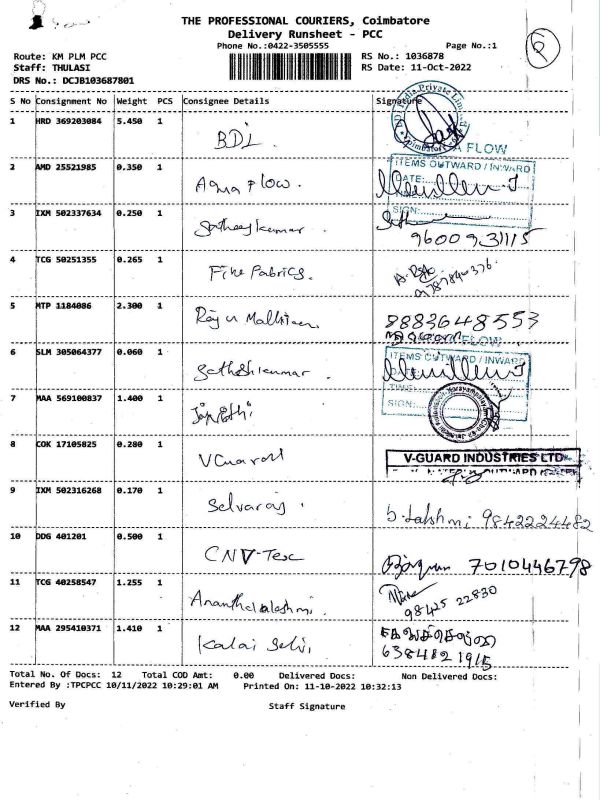 THE PROFESSIONAL COURIERS, Coimbatore
Delivery Runsheet - PCC
Phone No.:0422-3505555
Page No.:1
6
Route: KM PLM PCC
Staff: THULASI
DRS No.: DCJB103687801
RS No.: 1036878
RS Date: 11-Oct-2022
S No Consignment No Weight PCS Consignee Details Signature
1 HRD 369203084 5.450 1 BDI
2 AMD 25521985 0.350 1 Aqua Flow.
A FLOW
ITEMS OUTWARD / INWARD
DATE:
SIGN:
3 IXM 502337634 0.250 1 Satheeskumar
9600931115
4 TCG 50251355 0.265 1 Fine Fabrics.
9787840376
5 MTP 1184086 2.300 1
8883648553
FLOW
6 SLM 305064377 0.060 1 Satheshkumar
ITEMS OUTWARD / INWARD
TIME:
SIGN:
7 MAA 569100837 1.400 1
8 COK 17105825 0.280 1 VGuard
V-GUARD INDUSTRIES LTD
9 IXM 502316268 0.170 1 Selvaraj
S. Lakshmi 9842224482
10 DDG 401201 0.500 1 CNV-Tex
7010446798
11 TCG 40258547 1.255 1 Ananthalakshmi
98425 22830
12 MAA 295410371 1.410 1 Kalai Selvi
6384121915
Total No. Of Docs: 12 Total COD Amt: 0.00 Delivered Docs: Non Delivered Docs:
Entered By :TPCPCC 10/11/2022 10:29:01 AM Printed On: 11-10-2022 10:32:13
Verified By Staff Signature